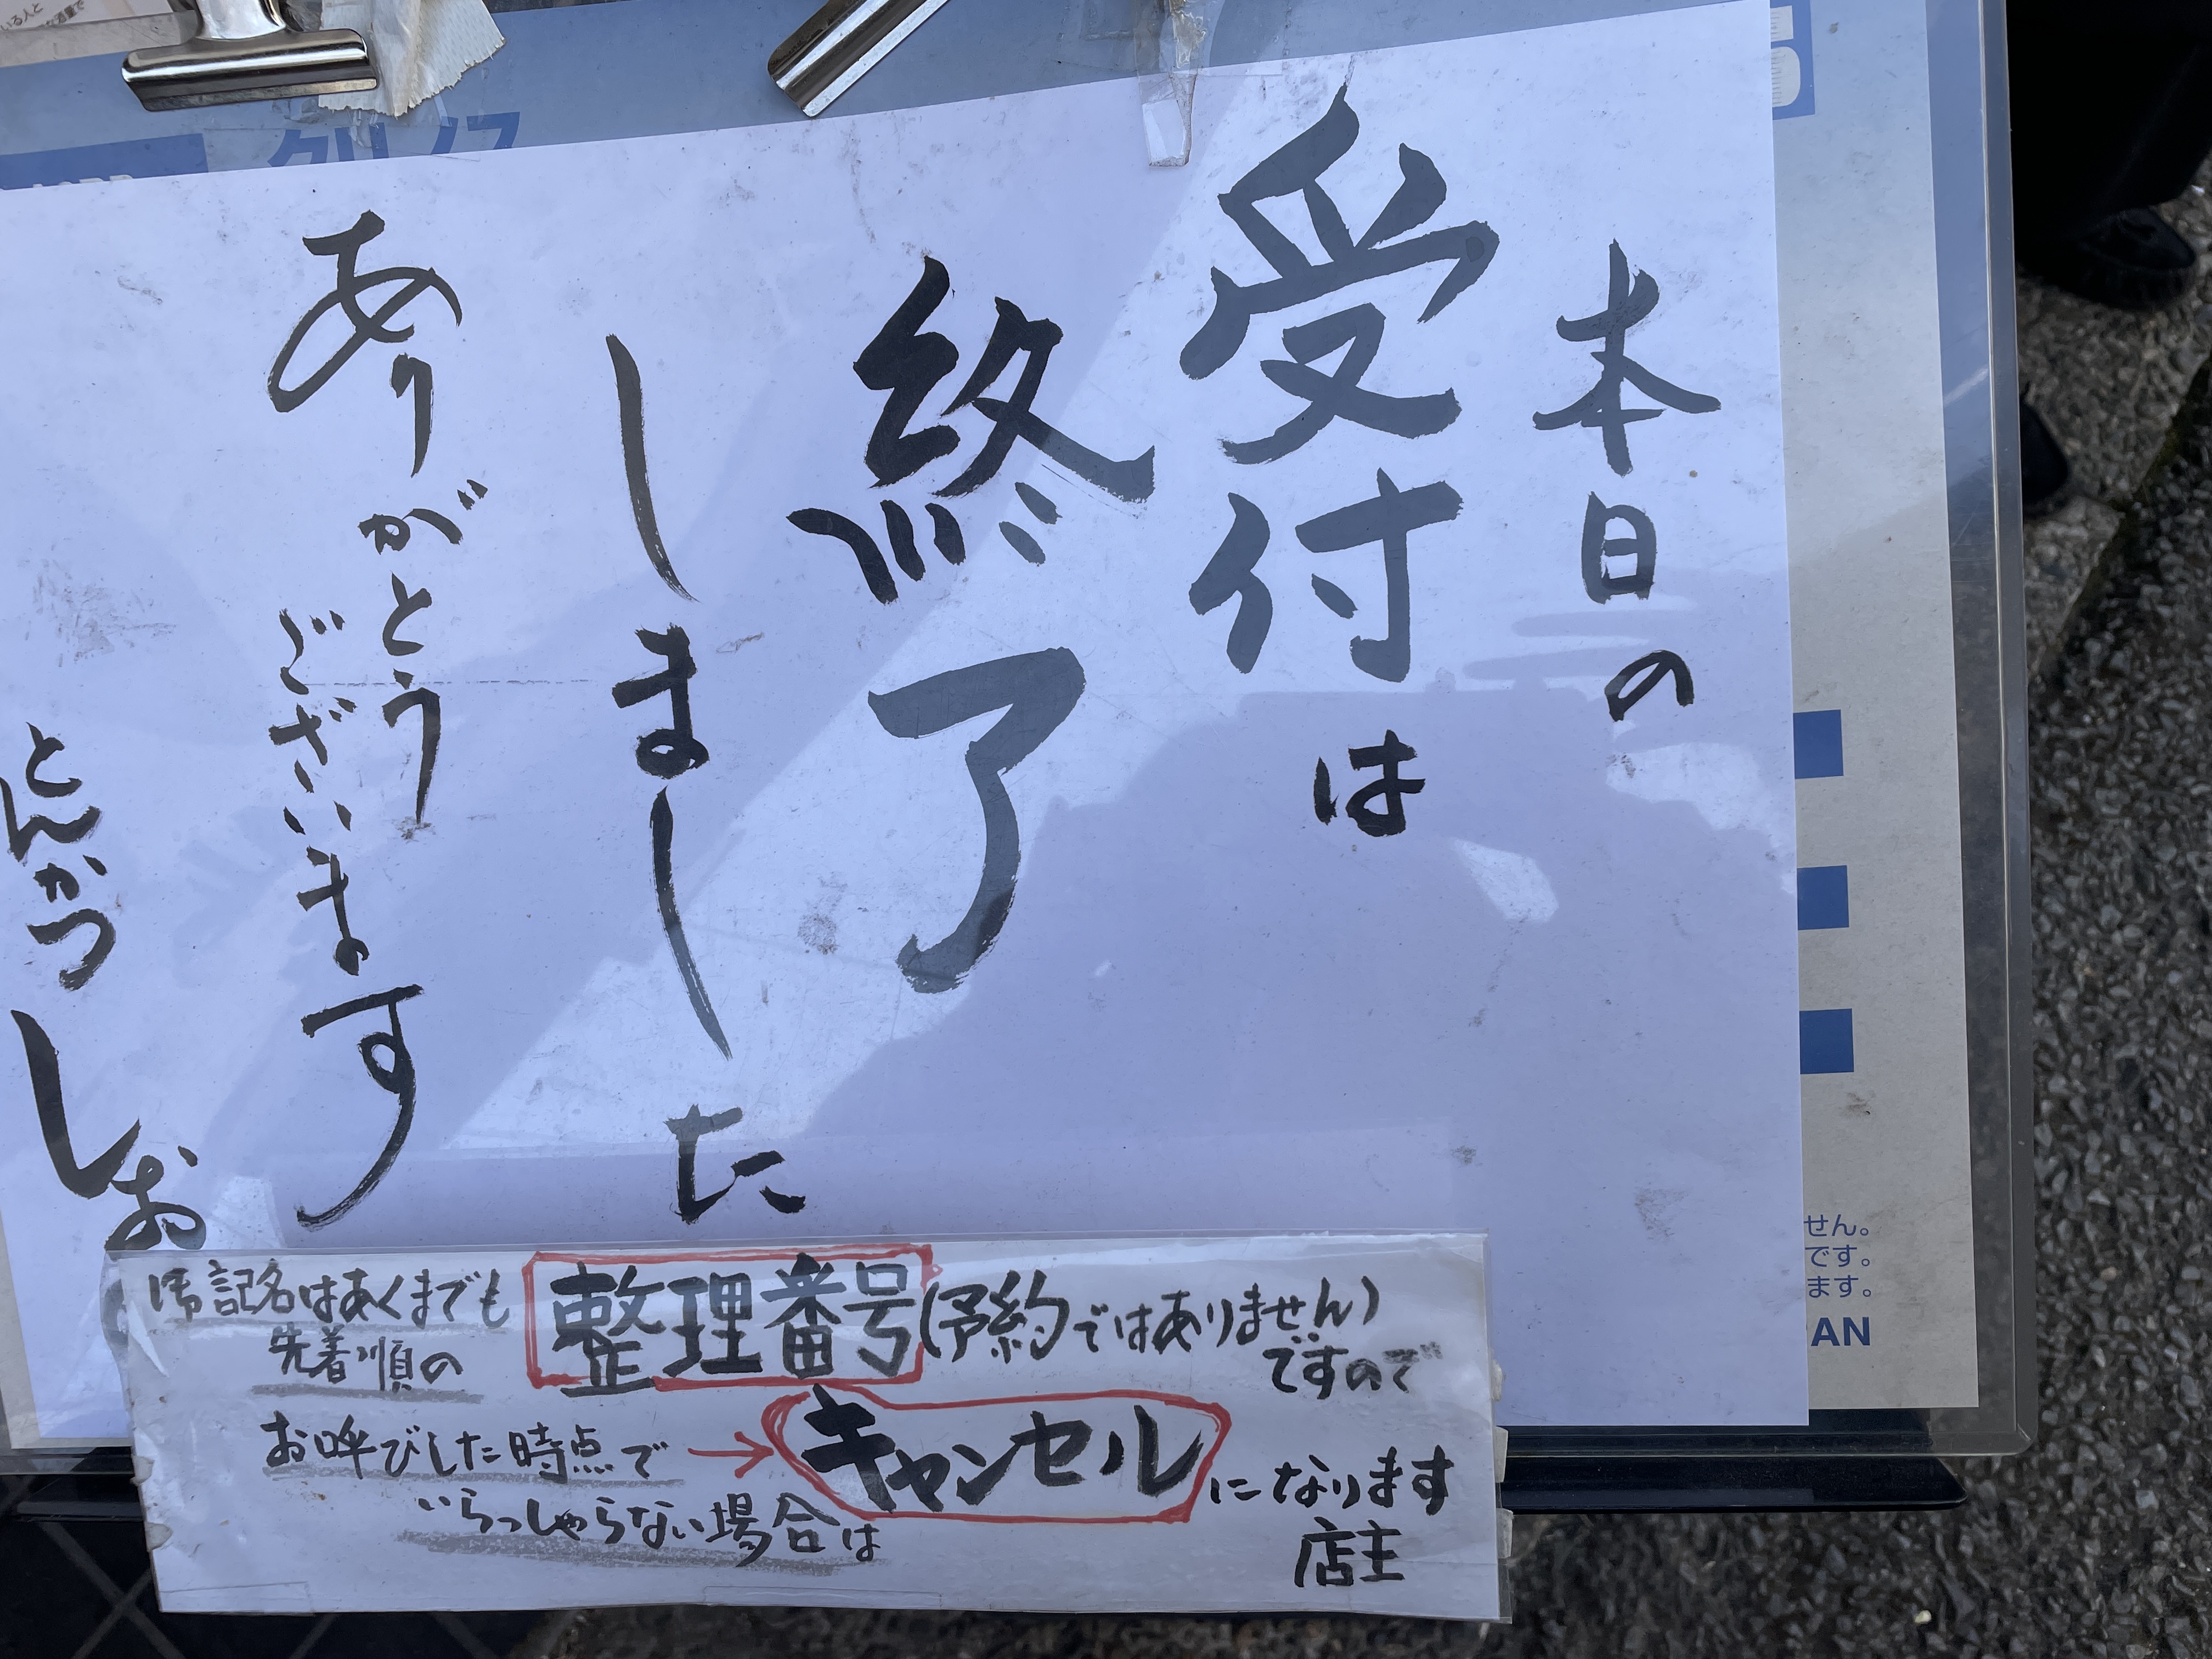 本日の
受付は
終了
しました
ありがとう
ございます
とんかつ
しお
御記名はあくまでも
先着順の
整理番号(予約ではありません)
ですので
お呼びした時点で
いらっしゃらない場合は
→キャンセルになります
店主
せん。
です。
ます。
PAN